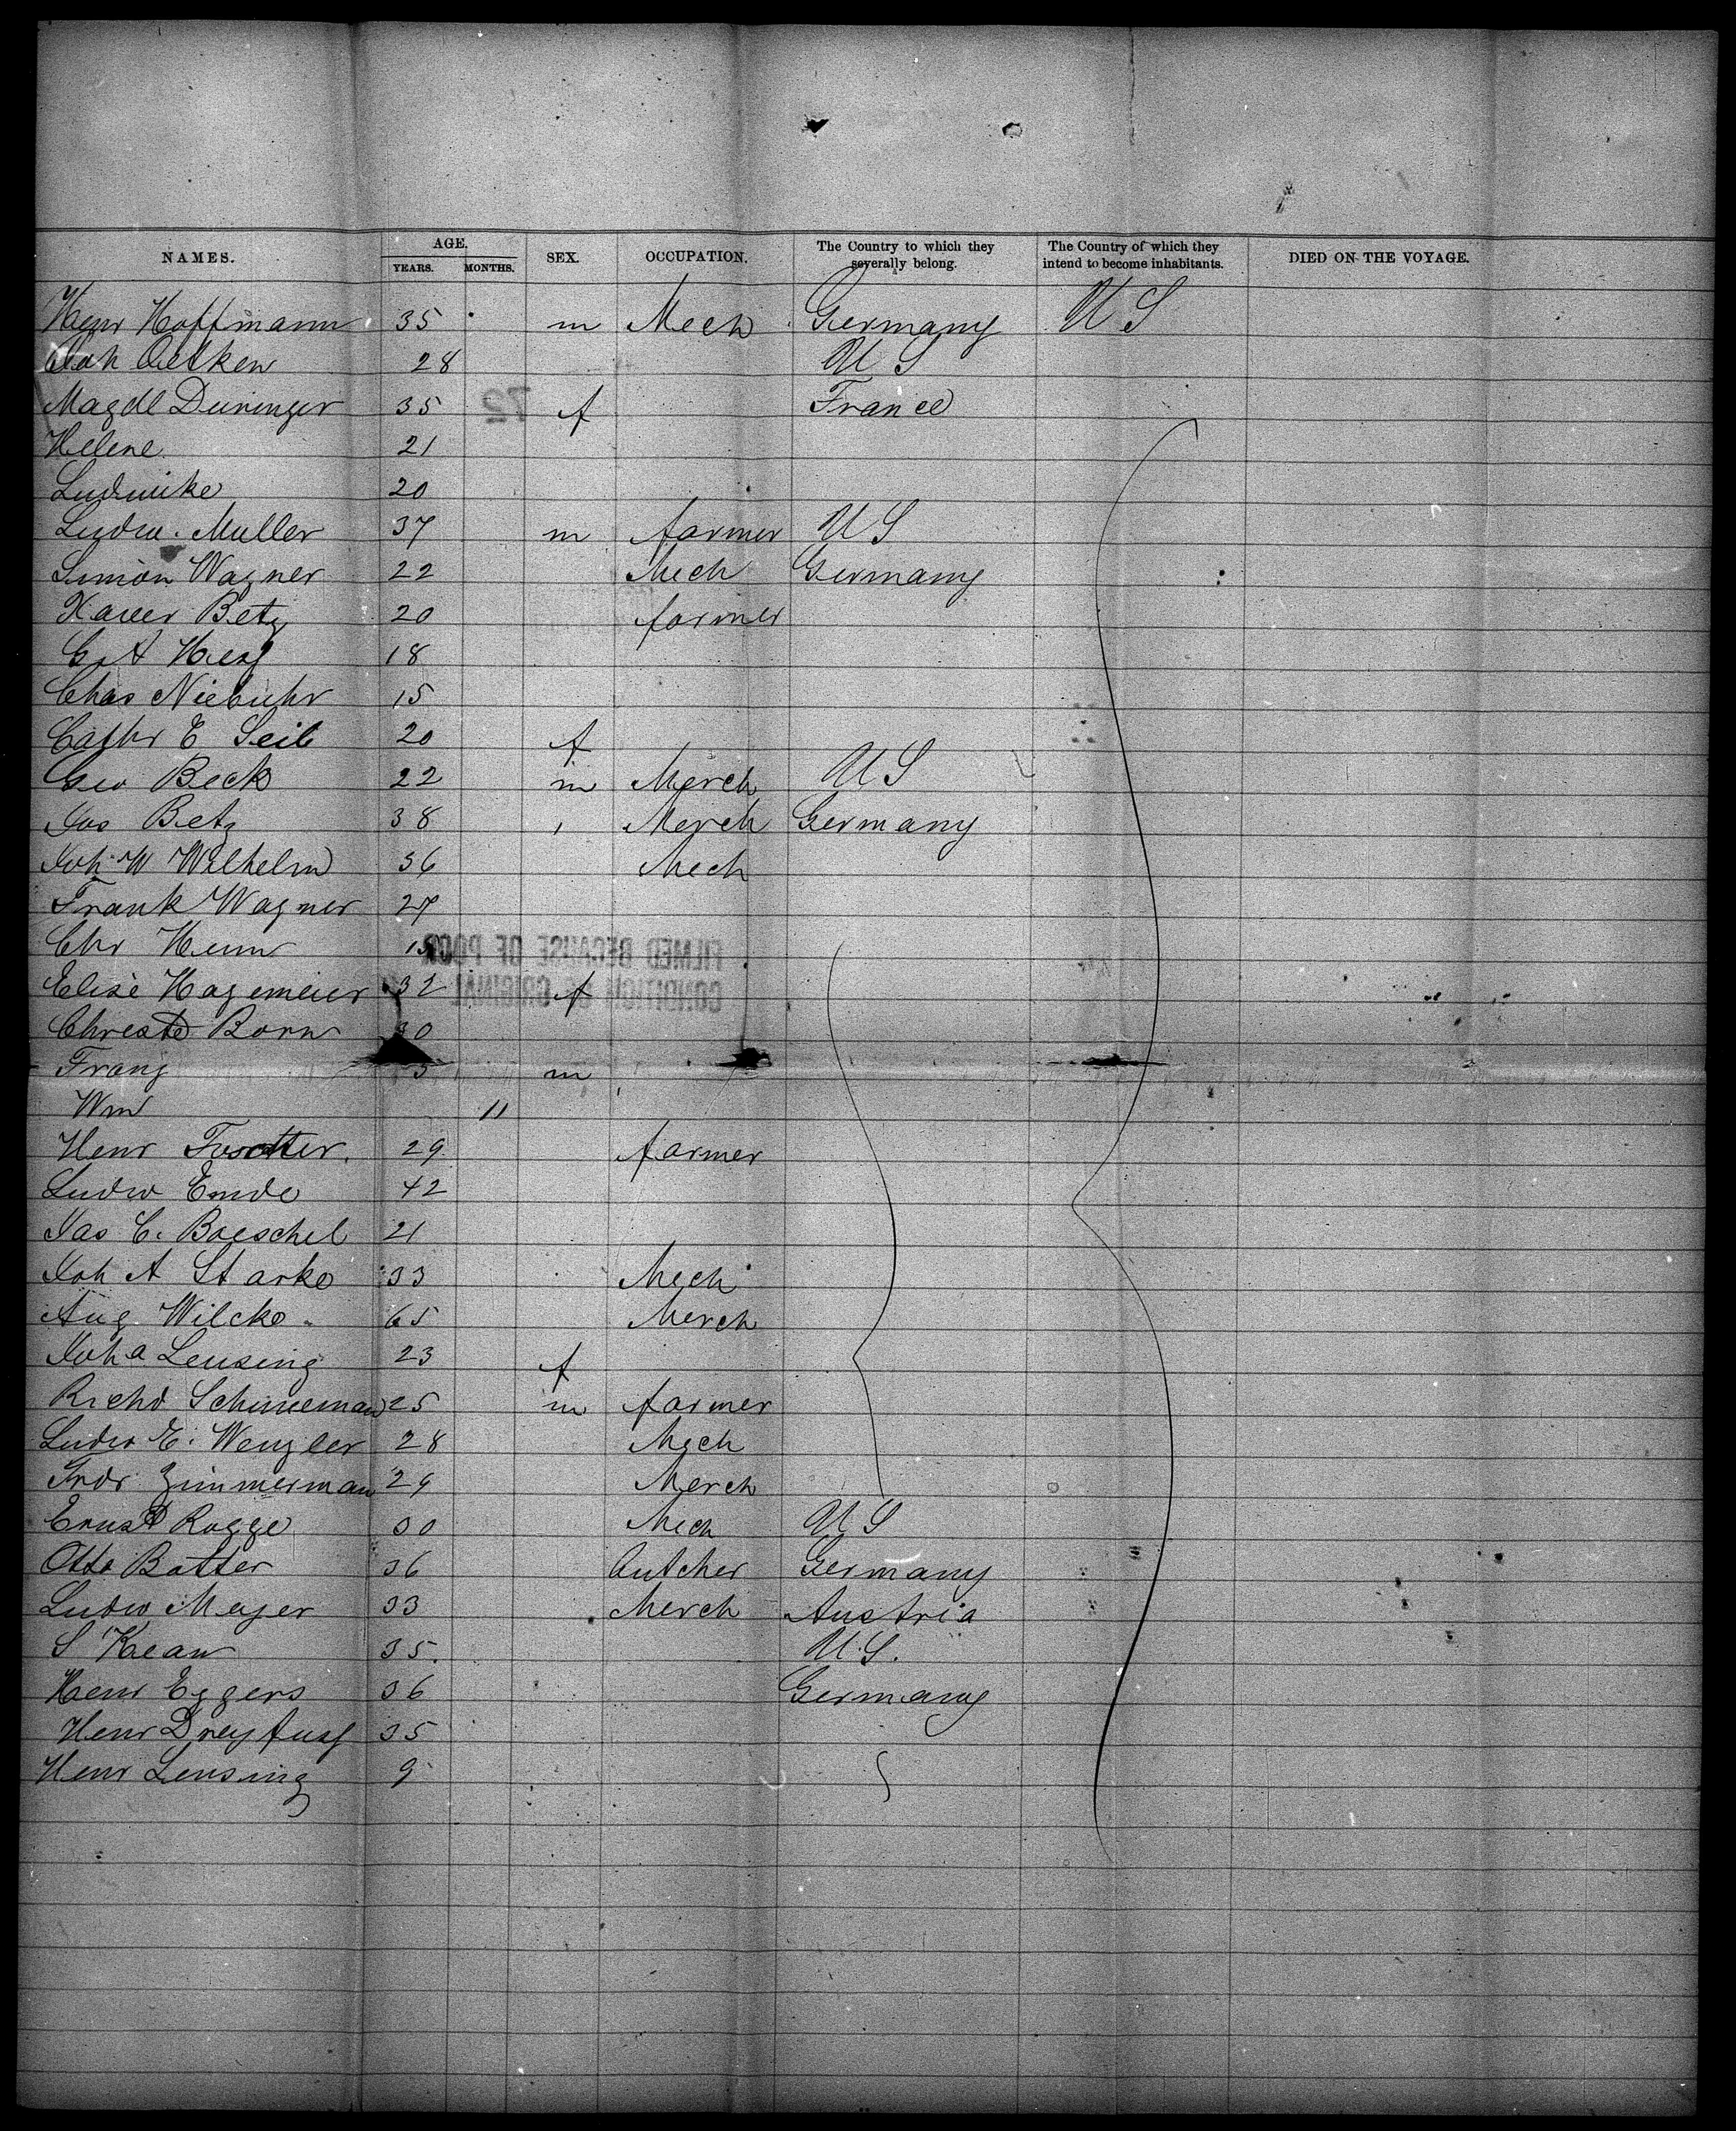 NAMES. AGE. YEARS. MONTHS. SEX. OCCUPATION. The Country to which they severally belong. The Country of which they intend to become inhabitants. DIED ON THE VOYAGE.
Henr Hoffmann 35 m Mech Germany U S
Joh Oetken 28 U S
Magdl Deuringer 35 f France
Helene 21
Ludwike 20
Ludw. Muller 37 m farmer U S
Simon Wagner 22 Mech Germany
Xaver Betz 20 farmer
G A Hess 18
Chas Niebuhr 15
Cathr E Seib 20 f
Geo Beck 22 m Merch U S
Jos Betz 38 Merch Germany
Joh W Wilhelm 36 Mech
Frank Wagner 27
Chr
FILMED BECAUSE OF POOR
CONDITION OF ORIGINAL
Elise Hagemeier 32 f
Christe Born 30
Franz 5 m
Wm 11
Henr 29 farmer
Ludw Emde 42
Jas C. Boeschel 21
Joh A Starke 33 Mech
Aug Wilcke 65 Merch
Joha Lensing 23 f
Richd Schuneman 25 m farmer
Ludw E. Wengler 28 Mech
Frdr Zimmerman 29 Merch
Ernst Rogge 30 Mech U S
Otto Batter 36 butcher Germany
Ludw Meyer 33 Merch Austria
S Kean 35. U.S.
Henr Eggers 36 Germany
Henr Dreyfuss 35
Henr Lensing 9